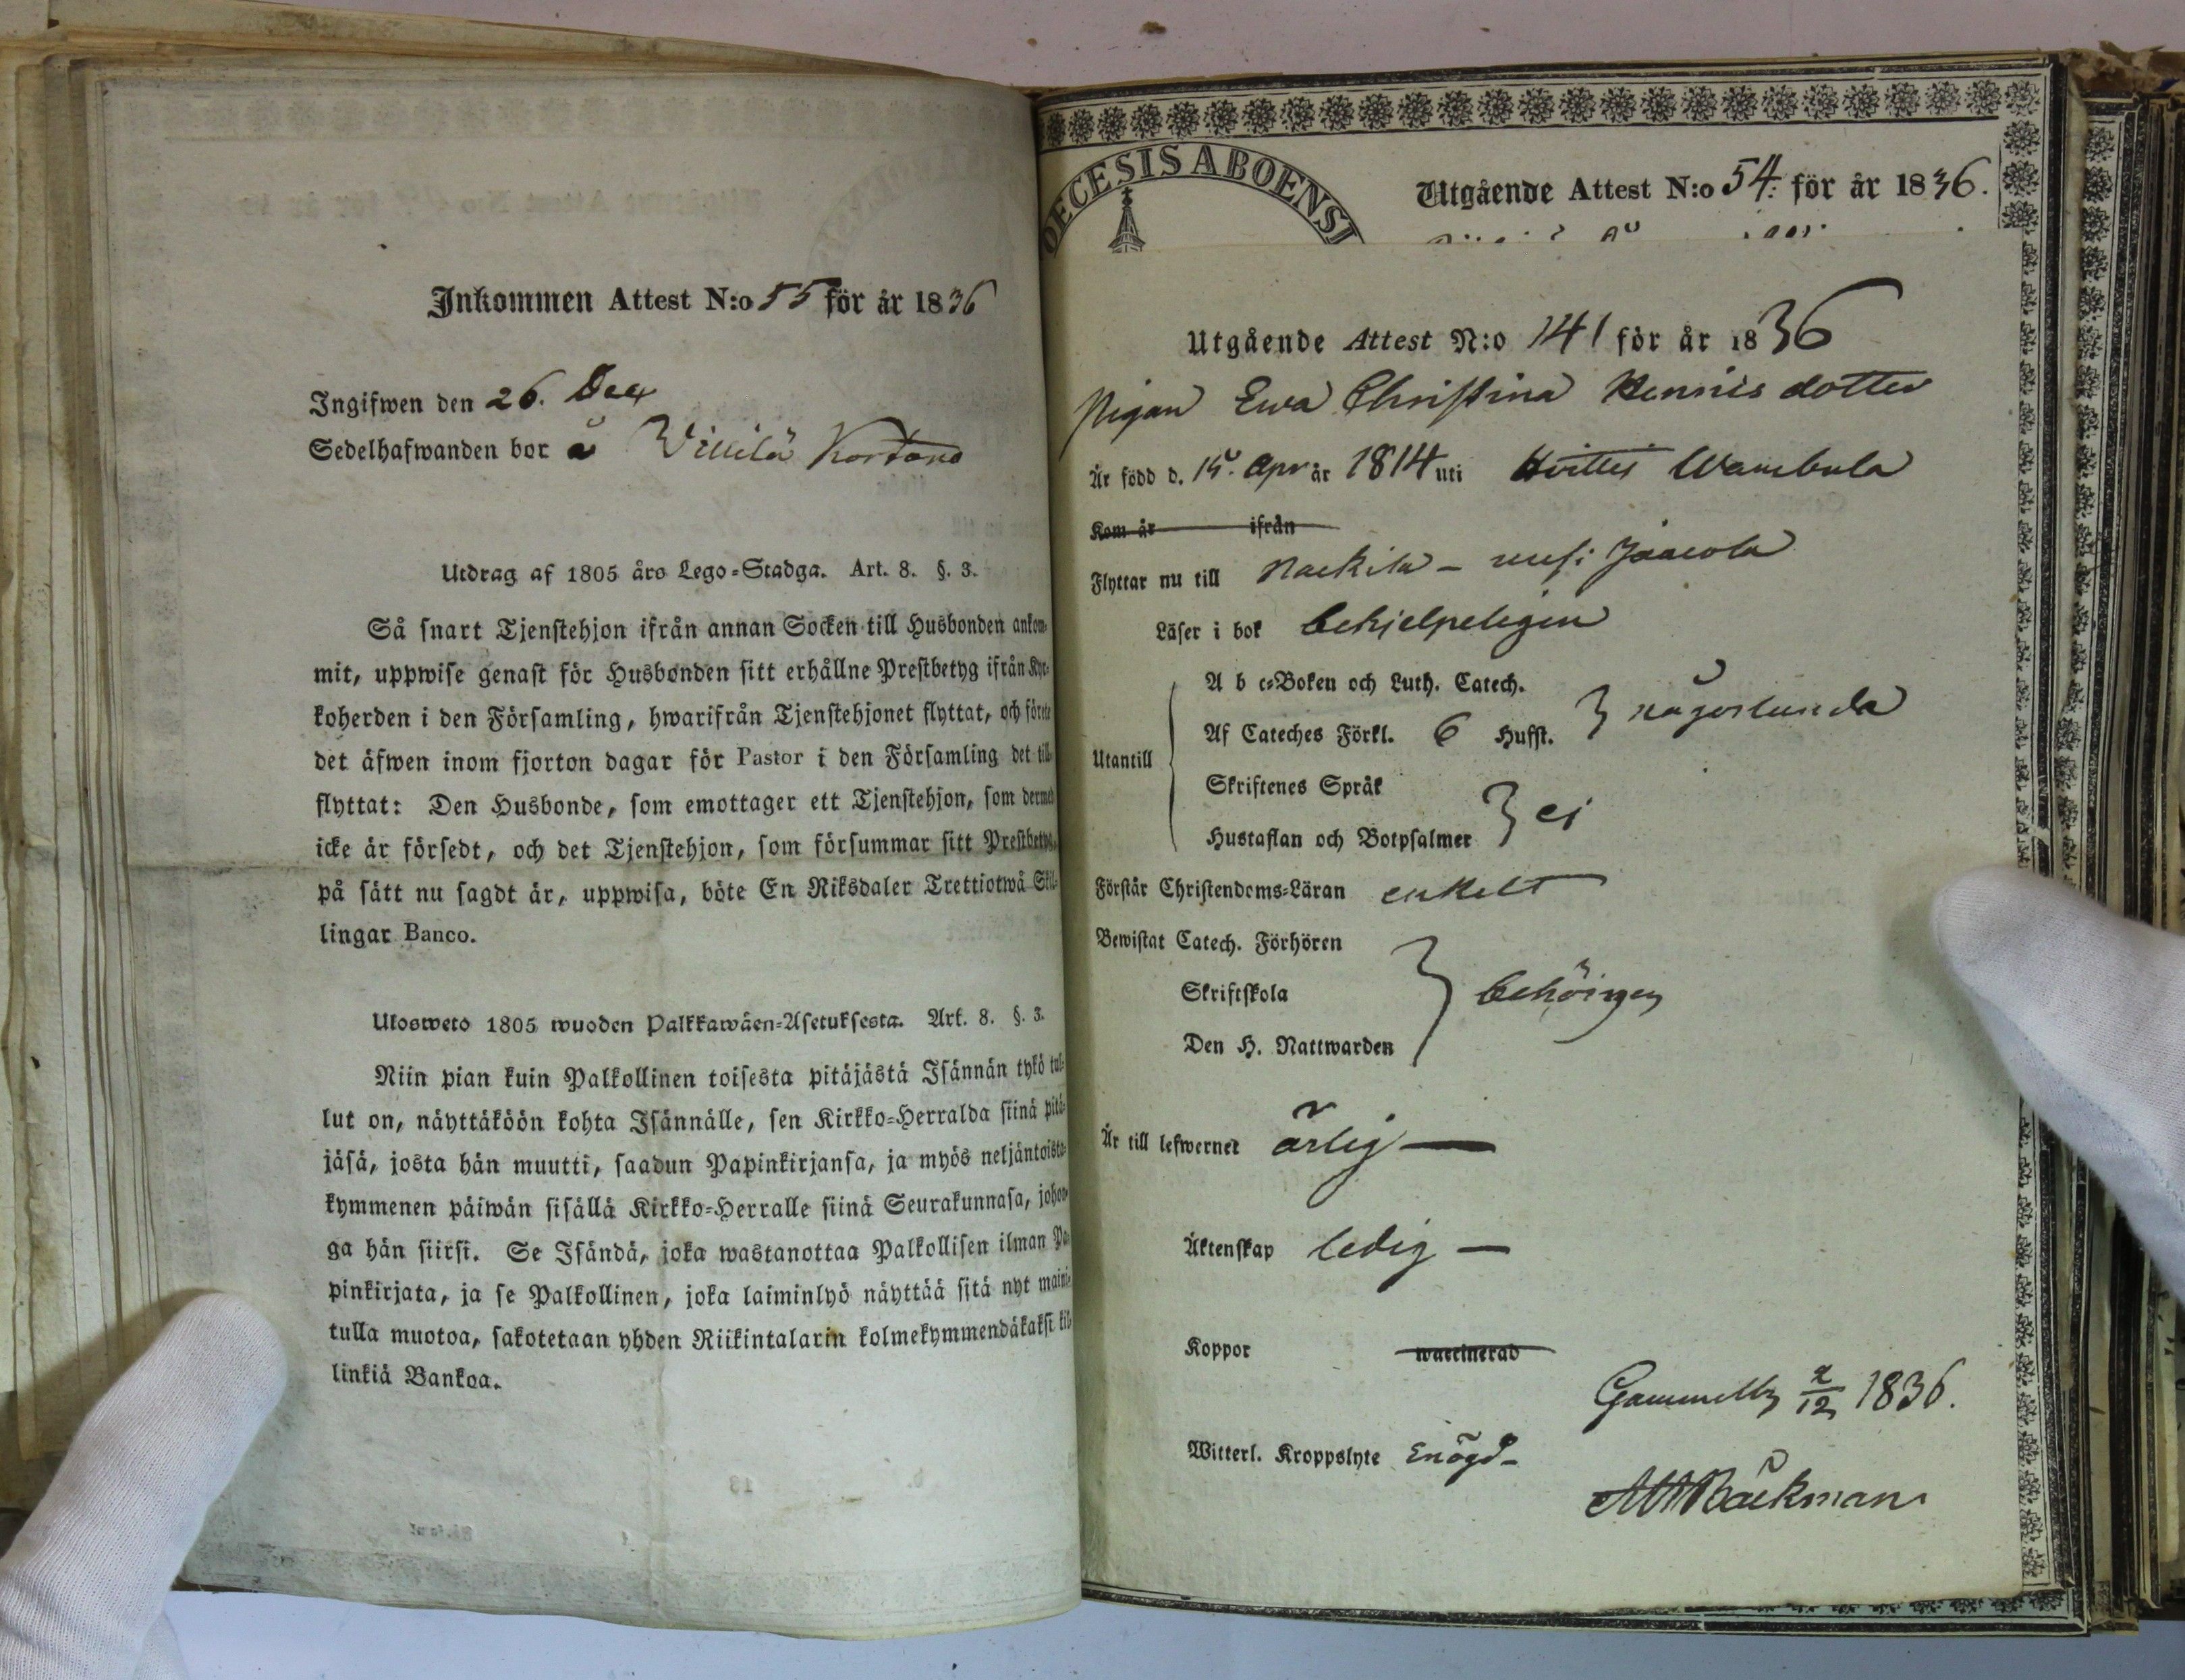 Inkommen Attest N:o 55 för år 1836
Ingifwen den 26. Dec
Sedelhafwanden bor å Villilä
Utdrag af 1805 års Lego-Stadga. Art. 8. §. 3.
Så snart Tjenstehjon ifrån annan Socken till Husbonden ankom-
mit, uppwise genast för Husbonden sitt erhållne Prestbetyg ifrån Kyr-
koherden i den Församling, hwarifrån Tjenstehjonet flyttat, och förete
det äfwen inom fjorton dagar för Pastor i den Församling det till-
flyttat: Den Husbonde, som emottager ett Tjenstehjon, som dermed
icke är försedt, och det Tjenstehjon, som försummar sitt Prestbetyg,
på sätt nu sagdt är, uppwisa, böte En Riksdaler Trettiotwå Skil-
lingar Banco.
Ulosweto 1805 wuoden Palkkawäen-Asetuksesta. Art. 8. §. 3.
Niin pian kuin Palkollinen toisesta pitäjästä Isännän tykö tul-
lut on, näyttäköön kohta Isännälle, sen Kirkko-Herralda siinä pitä-
jäsä, josta hän muutti, saadun Papinkirjansa, ja myös neljäntoista-
kymmenen päiwän sisällä Kirkko-Herralle siinä Seurakunnasa, johon-
ga hän siirsi. Se Isändä, joka wastanottaa Palkollisen ilman Pa-
pinkirjata, ja se Palkollinen, joka laiminlyö näyttää sitä nyt maini-
tulla muotoa, sakotetaan yhden Riikintalarin kolmekymmendäkaksi kil-
linkiä Bankoa.
DIOECESIS ABOENSI
Utgående Attest N:o 54. för år 1836.
Utgående Attest N:o 141 för år 1836
Pigan Ewa Christina Hennis dotter
Är född d. 15. Apr år 1814 uti Hvittis Wambula
Kom år ifrån
Flyttar nu till Nackila - Jaacola
Läser i bok behjelpeligen
A b c-Boken och Luth. Catech.
Af Cateches Förkl. 6 Hufst. någorlunda
Utantill
Skriftenes Språk
Hustaflan och Botpsalmer ej
Förstår Christendoms-Läran enkelt
Bewistat Catech. Förhören
Skriftskola behörigen
Den H. Nattwarden
Är till lefwernet ärlig
Äktenskap ledig
Koppor waccinerad
Gammelby 2/12 1836.
Witterl. Kroppslyte Enögd
Bäckman